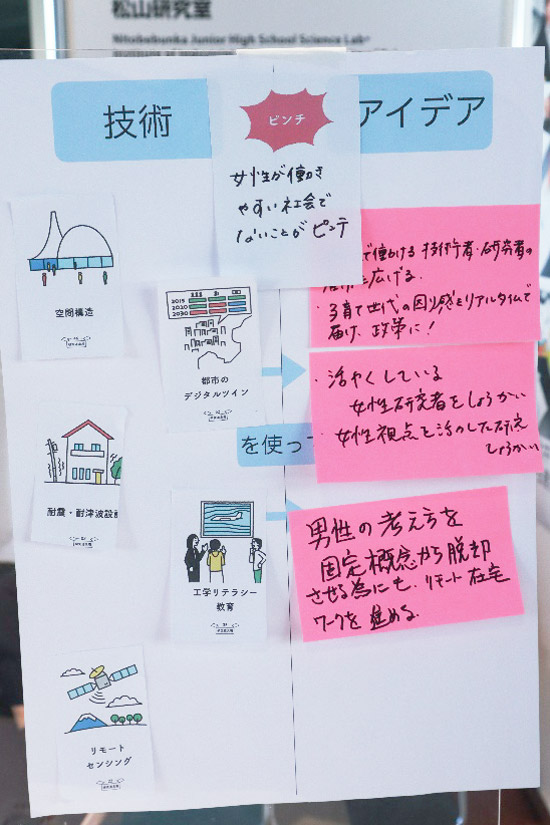 松山研究室
Nitobebunka Junior High School Science Lab+
技術
ピンチ
アイデア
女性が働き
やすい社会で
ないことがピンチ
で働ける 技術者・研究者の
を広げる.
・子育て世代の困り感をリアルタイムで
届け、政策に!
空間構造
2015
2020
2030
都市の
デジタルツイン
・活やくしている
女性研究者をしょうかい
・女性視点を活かした研究
しょうかい
を使っ
耐震・耐津波設
工学リテラシー
教育
男性の考え方を
固定概念から脱却
させる為にも、リモート在宅
ワークを進める.
リモート
センシング